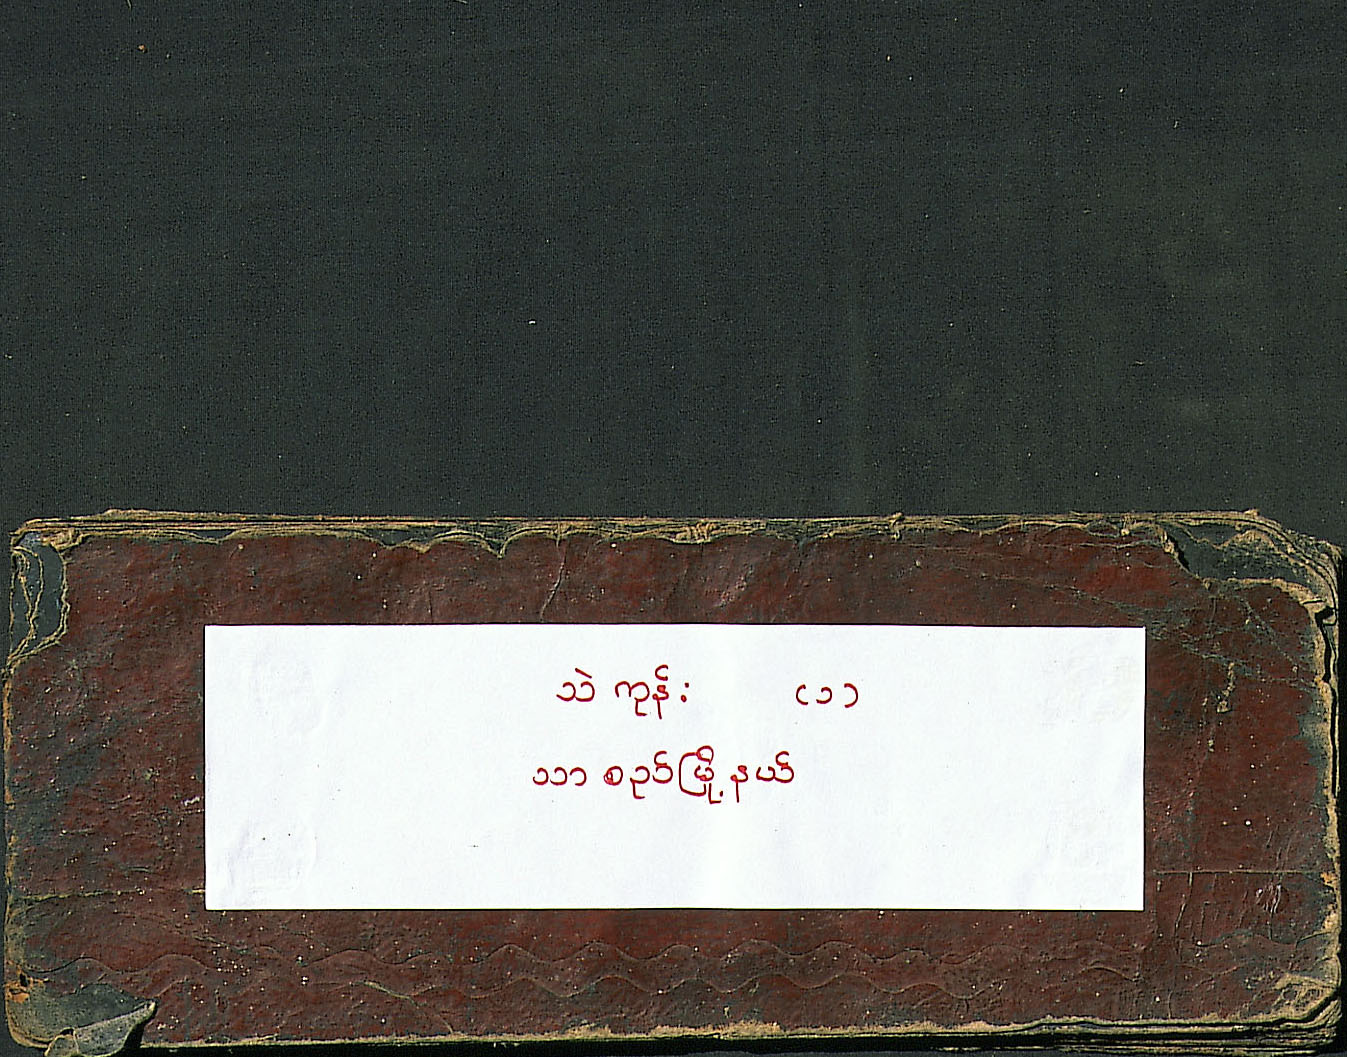 သဲ ကုန်း (၁)
သာ စည်မြို့နယ်